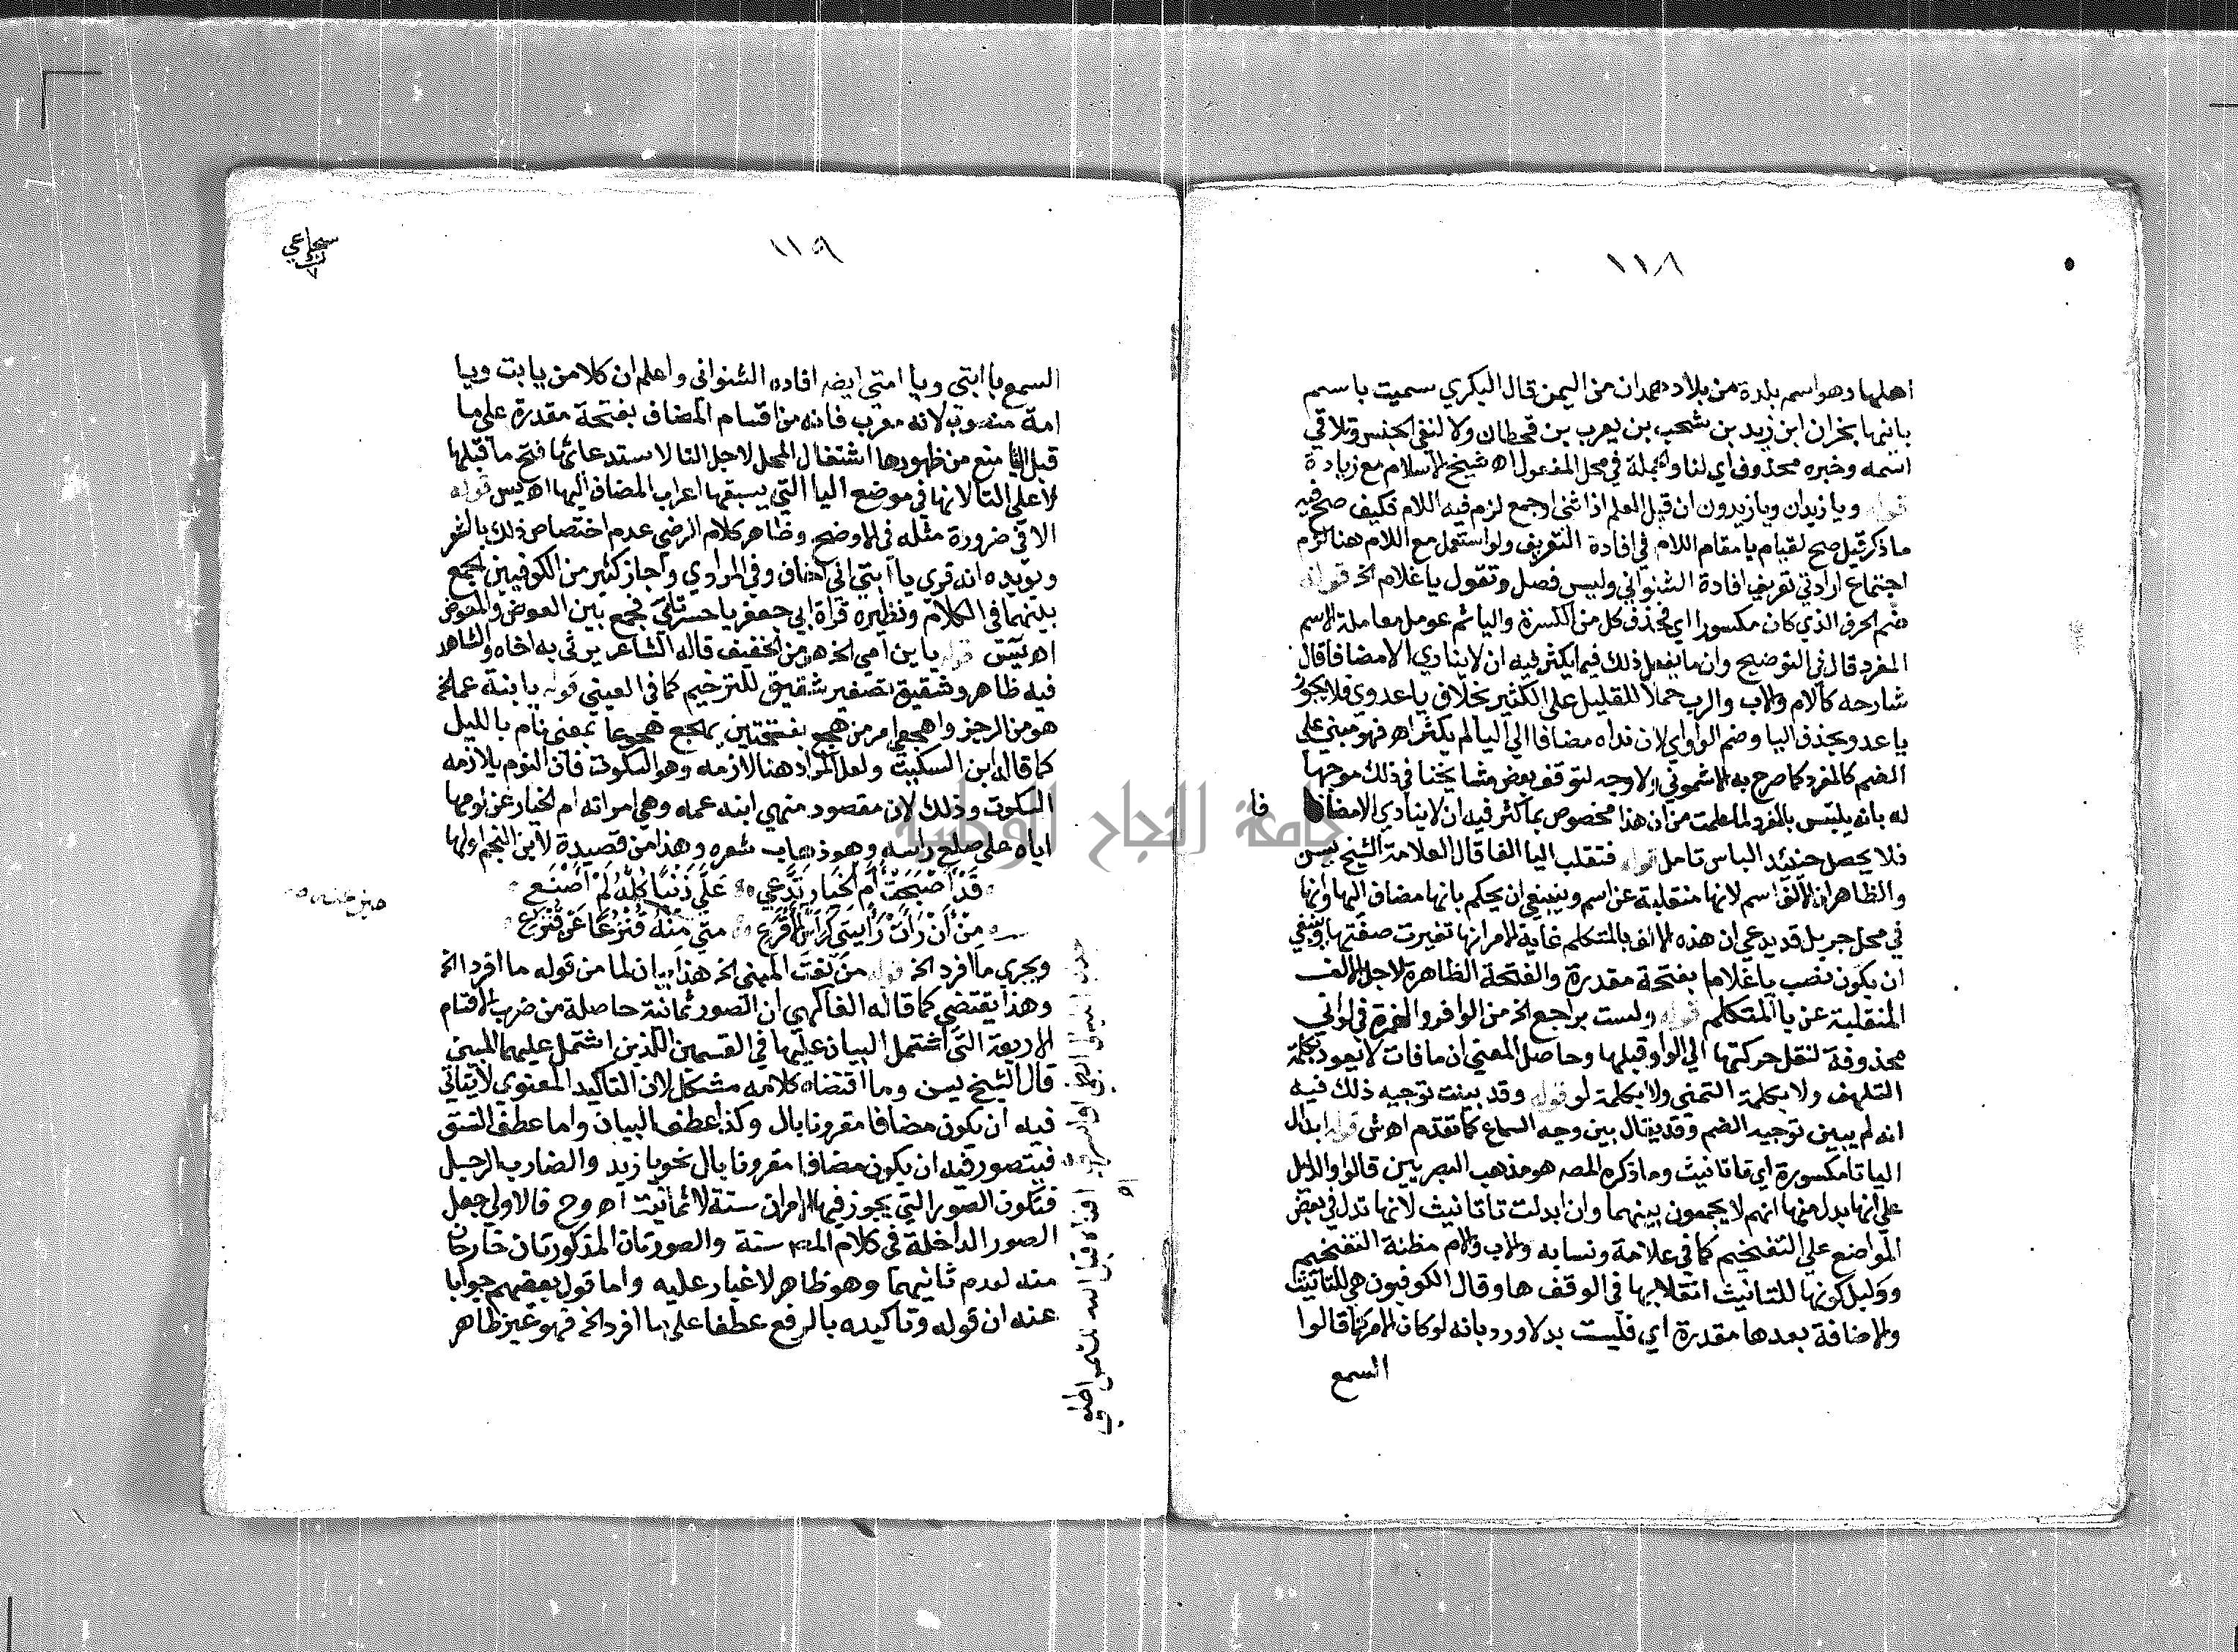 ١١٨
اهلها وهو اسم بلدة من بلاد همدان من اليمن قال البكري سميت باسم
بانيها نجران ابن زيد بن شحب بن يعرب بن قحطان ولا لنفي الجنس وتلاقي
اسمه وخبره محذوف اي لنا والجملة في محل المفعول اه شيخ الاسلام مع زيادة
قوله ويا زيدان ويا زيدون ان قيل العلم اذا ثنى اوجمع لزم فيه اللام فكيف صح فيه
ما ذكر قيل صح لقيام يا مقام اللام في افادة التعريف ولو استعمل مع اللام هنا لزم
اجتماع اداتي تعريف افادة الشنواني وليس فصل وتقول يا غلام الخ قوله
ضم الحرف الذي كان مكسورا اي فحذف كل من الكسرة واليا ثم عومل معاملة الاسم
المفرد قال في التوضيح وان ما يفعل ذلك فيما يكثر فيه ان لا ينادي الا مضافا قال
شارحه كالام والاب والرب حملا للقليل على الكثير بخلاف يا عدوي فلا يجوز
يا عدو بحذف اليا وضم الواو اي لان نداه مضافا الي اليا لم يكثر اه فهو مبني على
الضم كالمفرد كما صرح به الاشموني ولا وجه لتوقف بعض مشايخنا في ذلك موجها
له بانه يلتبس بالمفرد لما علمت من ان هذا مخصوص بما كثر فيه ان لا ينادي الا مضافا
فا
فلا يحصل حينئذ الباس تامل قوله فتقلب اليا الفا قال العلامة الشيخ يسن
والظاهر ان الالف اسم لانها منقلبة عن اسم وينبغي ان يحكم بانها مضاف اليها وانها
في محل جر بل قد يدعي ان هذه الالف يا المتكلم غاية الامر انها تغيرت صفتها وينبغي
ان يكون نصب يا غلاما بفتحة مقدرة والفتحة الظاهرة لاجل الالف
المنقلبة عن يا المتكلم قوله ولست براجع الخ من الوافر والهمزة في لواني
محذوفة لنقل حركتها الي الواو قبلها وحاصل المعني ان ما فات لا يعود بكلمة
التلهف ولا بكلمة التمني ولا بكلمة لو قوله وقد بينت توجيه ذلك فيه
انه لم يبين توجيه الضم وقد يقال بين وجه السماع كما تقدم اه ش قوله ابدال
اليا تا مكسورة اي تا تانيث وما ذكره المصه هو مذهب البصريين قالوا والدليل
علي انها بدل منها انهم لا يجمعون بينهما وان ابدلت تا تانيث لانها تدل في بعض
المواضع علي التفخيم كما في علامة ونسابه والاب والام مظنة التفخيم
ودليل كونها للتانيث انقلابها في الوقف ها وقال الكوفيون هي للتانيث
والاضافة بعدها مقدرة اي فليست بدلا ورد بانه لو كان الامر كما قالوا
السمع
١١٩
سجاعي
السمع يا ابتي ويا امتي ايضه افاده الشنواني واعلم ان كلا من يا ابت ويا
امة منصوب لانه معرب فانه من اقسام المضاف بفتحة مقدرة على ما
قبل التا منع من ظهورها اشتغال المحل لاجل التا لاستدعائها فتح ما قبلها
لا علي التا لانها في موضع اليا التي يسبقها اعراب المضاف اليها اه يس قوله
الا في ضرورة مثله في الاوضح وظاهر كلام الرضي عدم اختصاص ذلك بالشعر
ويؤيده انه قرى يا ابتي اني اخاف وفي المرادي واجاز كثير من الكوفيين الجمع
بينهما في الكلام ونظيره قراة ابي جعفر يا حسرتاي فجمع بين العوض والمعوض
اه يس قوله يا ابن امي الخ هو من الخفيف قاله الشاعر يرثى به اخاه والشاهد
فيه ظاهر وشقيق تصغير شقيق للترخيم كما في العيني قوله يا ابنة عما الخ
هو من الرجز واهجعي امر من هجع بفتحتين يهجع هجوعا بمعنى نام بالليل
كما قاله ابن السكيت ولعل المراد هنا لازمه وهو السكوت فان النوم يلازمه
السكوت وذلك لان مقصوده نهي ابنه عمه وهي امراته ام الخيار عن لومها
اياه على صلع راسه وهو ذهاب شعره وهذا من قصيدة لابي النجم اولها
قَدْ اَصْبَحَتْ اُمُّ الخِيَارِ تَدَّعِي عَلَيَّ ذَنْبًا كُلُّهُ لَمْ اَصْنَعِ
مِنْ اَنْ رَاَتْ رَاسِي كَرَاسِ الاَقْرَعِ مَيَّزَ عَنْهُ قُنْزُعًا عَنْ قُنْزُعِ
ميز عنه صح
ويجري ما افرد الخ قوله من نعت المبني الخ هذا بيان لما من قوله ما افرد الخ
وهذا يقتضي كما قاله الفاكهي ان الصور ثمانية حاصلة من ضرب الاقسام
الاربعة التي اشتمل البيان عليها في القسمين اللذين اشتمل عليهما المبين
قال الشيخ يسن وما اقتضاه كلامه مشكل لان التاكيد المعنوي لا يتاتي
فيه ان يكون مضافا مقرونا بال وكذا عطف البيان واما عطف النسق
فيتصور فيه ان يكون مضافا مقرونا بال نحو يا زيد والضارب الرجل
فتكون الصور التي يجوز فيها الامران ستة لا ثمانية اه وح فالاولي جعل
الصور الداخلة في كلام المصه ستة والصورتان المذكورتان خارجتان
منه لعدم تاتيهما وهو ظاهر لا غبار عليه واما قول بعضهم جوابا
عنه ان قوله وتاكيده بالرفع عطفا على ما افرد الخ فهو غير ظاهر
جذب الليالي ابطئي او اسرعي افناه قيل الله للشمس اطلعي
جامعة النجاح الوطنية